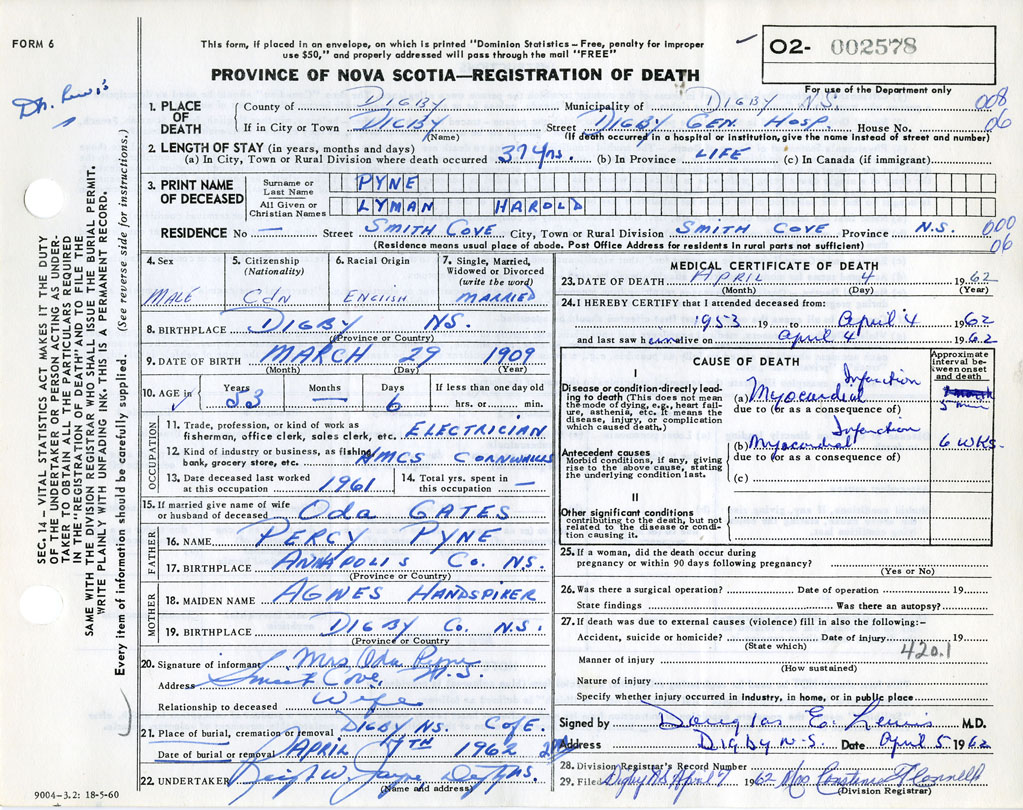 FORM 6
This form, if placed in an envelope, on which is printed "Dominion Statistics – Free, penalty for improper
use $50," and properly addressed will pass through the mail "FREE"
O2- 002578
PROVINCE OF NOVA SCOTIA—REGISTRATION OF DEATH
For use of the Department only
Dr. Lewis
008
06
1. PLACE OF DEATH
County of DIGBY Municipality of DIGBY N.S.
If in City or Town DIGBY Street DIGBY GEN. HOSP. House No.
(Name) (If death occurred in a hospital or institution, give the name instead of street and number)
2. LENGTH OF STAY (in years, months and days)
(a) In City, Town or Rural Division where death occurred 37 yrs. (b) In Province LIFE (c) In Canada (if immigrant)
3. PRINT NAME OF DECEASED
Surname or Last Name PYNE
All Given or Christian Names LYMAN HAROLD
RESIDENCE No — Street SMITH COVE City, Town or Rural Division SMITH COVE Province N.S.
000
06
(Residence means usual place of abode. Post Office Address for residents in rural parts not sufficient)
4. Sex MALE
5. Citizenship (Nationality) CDN
6. Racial Origin ENGLISH
7. Single, Married, Widowed or Divorced (write the word) MARRIED
8. BIRTHPLACE DIGBY NS.
(Province or Country)
9. DATE OF BIRTH MARCH 29 1909
(Month) (Day) (Year)
10. AGE in Years 53 Months — Days 6 If less than one day old hrs. or min.
OCCUPATION
11. Trade, profession, or kind of work as
fisherman, office clerk, sales clerk, etc. ELECTRICIAN
12. Kind of industry or business, as fishing,
bank, grocery store, etc. HMCS CORNWALLIS
13. Date deceased last worked
at this occupation 1961
14. Total yrs. spent in
this occupation —
15. If married give name of wife
or husband of deceased Oda GATES
FATHER
16. NAME PERCY PYNE
17. BIRTHPLACE ANNAPOLIS Co. NS.
(Province or Country)
MOTHER
18. MAIDEN NAME AGNES HANDSPIKER
19. BIRTHPLACE DIGBY Co. N.S.
(Province or Country)
20. Signature of informant Mrs Oda Pyne
Address Smith Cove, N.S.
Relationship to deceased Wife
21. Place of burial, cremation or removal DIGBY NS. CofE.
Date of burial or removal APRIL 7TH 1962
22. UNDERTAKER
(Name and address)
MEDICAL CERTIFICATE OF DEATH
23. DATE OF DEATH APRIL 4 1962
(Month) (Day) (Year)
24. I HEREBY CERTIFY that I attended deceased from:
1953 19 to April 4 1962
and last saw him alive on April 4 1962
CAUSE OF DEATH
Approximate interval between onset and death
I
Disease or condition directly leading to death (This does not mean the mode of dying, e.g., heart failure, asthenia, etc. It means the disease, injury, or complication which caused death.)
(a) Myocardial Infarction 5 min
due to (or as a consequence of)
Antecedent causes
Morbid conditions, if any, giving rise to the above cause, stating the underlying condition last.
(b) Myocardial Infarction 6 WKS.
due to (or as a consequence of)
(c)
II
Other significant conditions
contributing to the death, but not related to the disease or condition causing it.
25. If a woman, did the death occur during
pregnancy or within 90 days following pregnancy?
(Yes or No)
26. Was there a surgical operation? Date of operation 19
State findings Was there an autopsy?
27. If death was due to external causes (violence) fill in also the following:-
Accident, suicide or homicide? Date of injury 19
(State which)
420.1
Manner of injury
(How sustained)
Nature of injury
Specify whether injury occurred in industry, in home, or in public place
Signed by Douglas E. Lewis M.D.
Address Digby N.S. Date April 5 1962
28. Division Registrar's Record Number
29. Filed Digby NS April 7 1962 Mrs Constance
(Division Registrar)
SEC. 14 – VITAL STATISTICS ACT MAKES IT THE DUTY
OF THE UNDERTAKER OR PERSON ACTING AS UNDER-
TAKER TO OBTAIN ALL THE PARTICULARS REQUIRED
IN THE "REGISTRATION OF DEATH" AND TO FILE THE
SAME WITH THE DIVISION REGISTRAR WHO SHALL ISSUE THE BURIAL PERMIT.
WRITE PLAINLY WITH UNFADING INK. THIS IS A PERMANENT RECORD.
Every item of information should be carefully supplied. (See reverse side for instructions.)
9004–3.2: 18-5-60